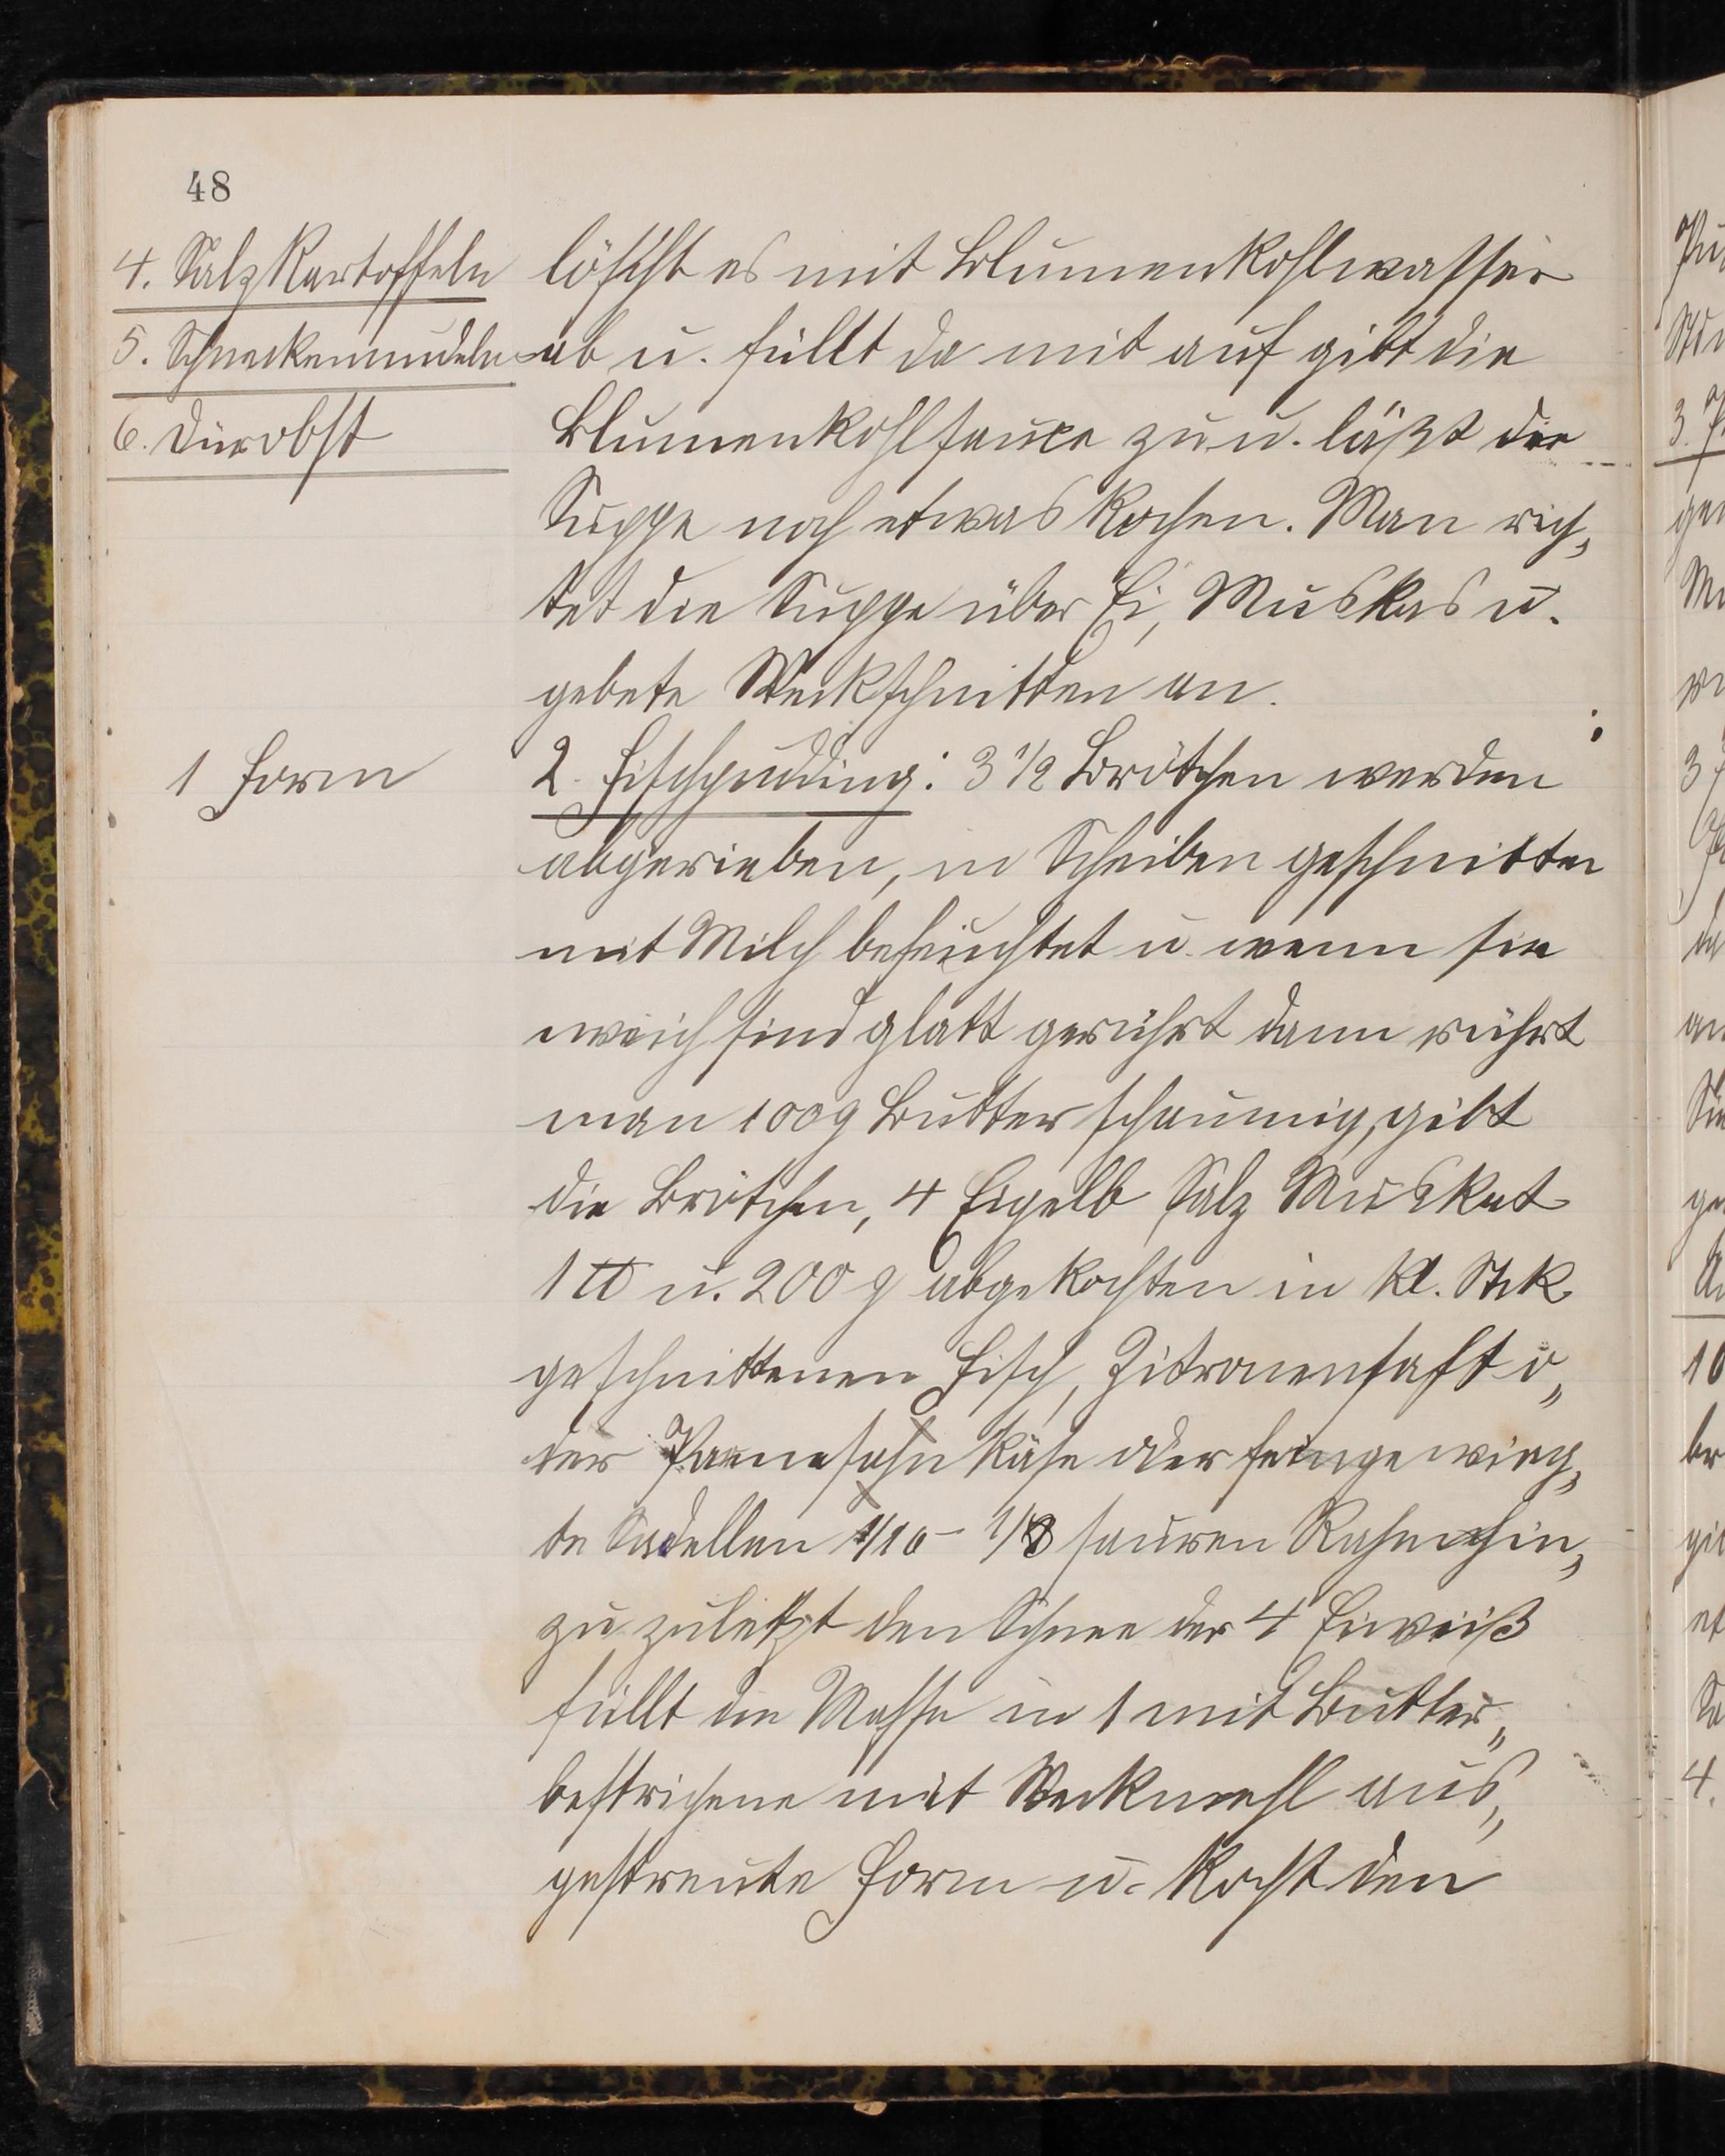 48
4. Salzkartoffeln
5. Schneckennudeln
6. Dürobst
löscht es mit Blumenkohlwasser
ab u. füllt da mit auf gibt die
Blumenkohlsauce zu u. läßt die
Suppe noch etwas kochen. Man rich„
tet die Suppe über Ei, Muskas u.
gebete Weckschnitten an.
1 Form
2. Fischpudding: 3 1/2 Brötchen werden
abgerieben, in Scheiben geschnitten
mit Milch befeuchtet u. wenn sie
weich sind glatt gerührt dann rührt
man 100 g Butter schaumig, gibt
die Brötchen, 4 Eigelb Salz Muskat
1 ℔ u. 200 g abgekochten in kl. Stk
geschnittenen Fisch, Zitronensaft o„
der Parmesahn Käse oder feingewieg„
te Sadellen 1/16 - 1/8 sauren Rahm hin„
zu zuletzt den Schnee der 4 Eiweiß
füllt die Masse in 1 mit Butter„
bestrichene mit Weckmehl aus„
gestreute Form u. kocht den